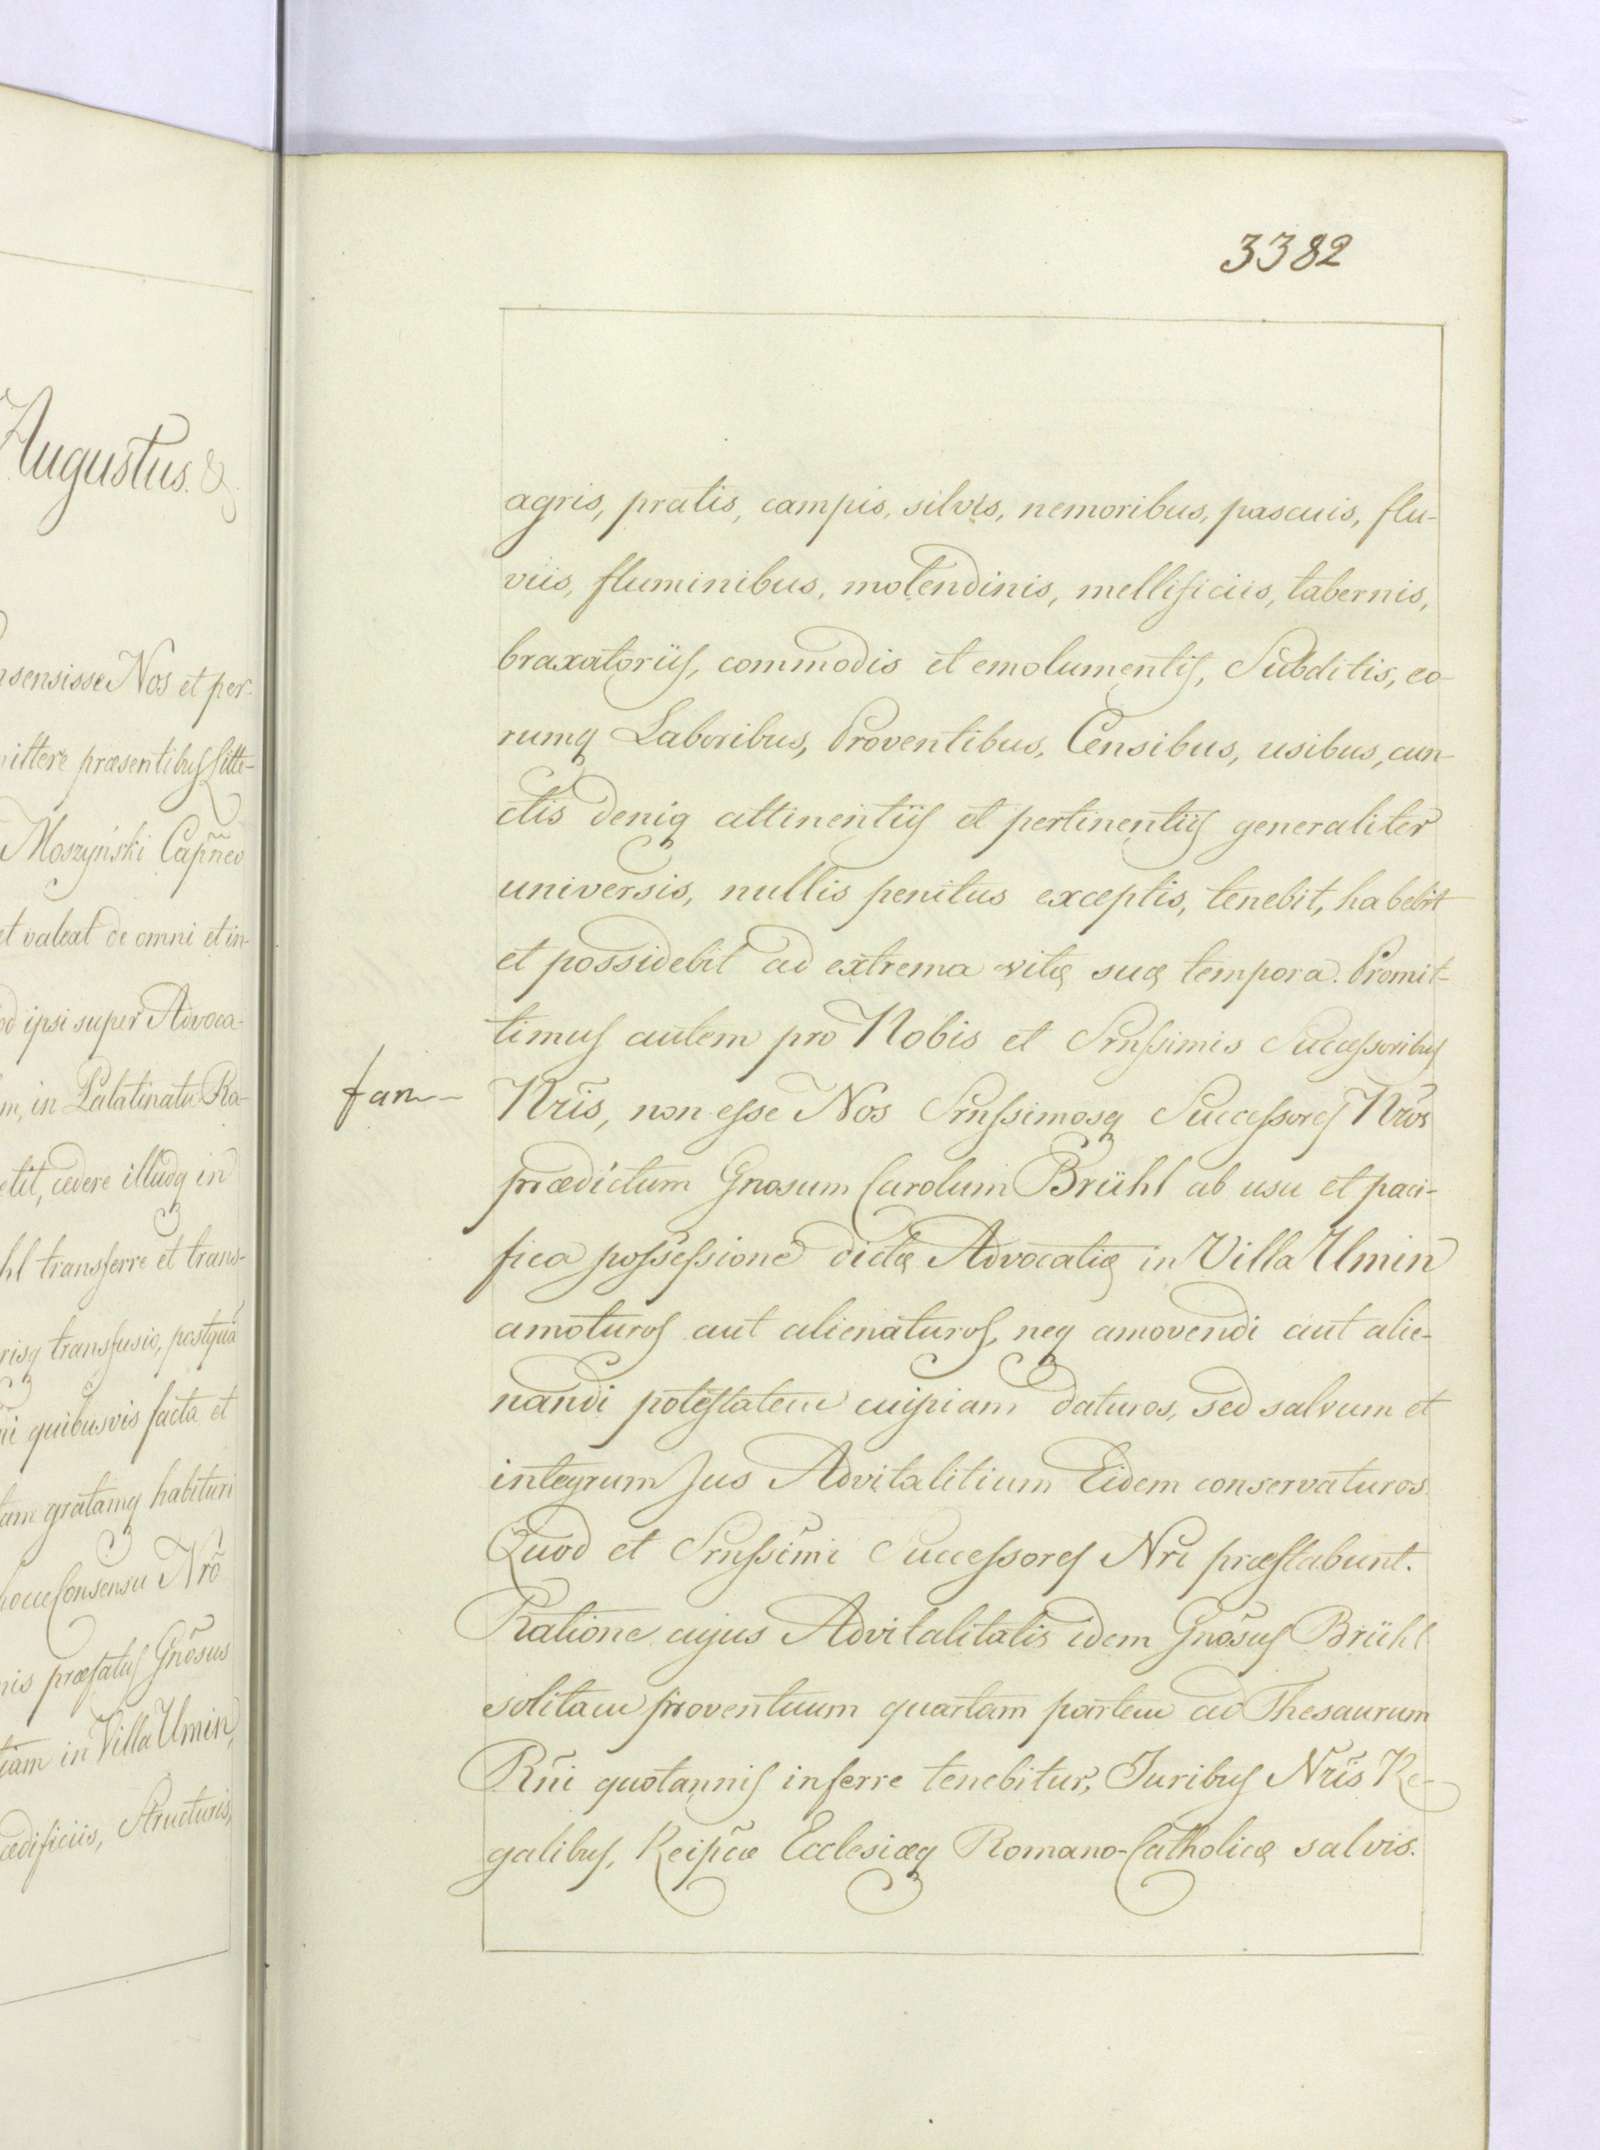 Augustus. &.
sensisse Nos et per-
mittere præsentibus Litte-
Moszyński Capñeo
et valeat de omni et in-
od ipsi super Advoca-
m, in Palatinatu Ra-
etit, cedere illudq in
hl transferre et trans-
risq transfusio, postquã
quibusvis facta et
tam gratamq habituri
hocce Consensu Nrõ
nis præfatus Gnõsus
iam in Villa Umin,
ædificiis, Structuris,
3382
agris, pratis, campis, silvis, nemoribus, pascuis, flu-
viis, fluminibus, molendinis, mellificiis, tabernis,
braxatoriis, commodis et emolumentis, Subditis, eo-
rumq Laboribus, Proventibus, Censibus, usibus, cun-
ctis deniq attinentiis et pertinentiis generaliter
universis, nullis penitus exceptis, tenebit, habebit
et possidebit ad extrema vitæ suæ tempora. Promit-
timus autem pro Nobis et Srnssimis Successoribus
Nrĩs, non esse Nos Srnssimosq Successores Nrõs
prædictum Gnosum Carolum Brühl ab usu et paci-
fica possessione dictæ Advocatiæ in Villa Umin
amoturos aut alienaturos, neq amovendi aut alie-
nandi potestatem cuipiam daturos, sed salvum et
integrum Jus Advitalitium Eidem conservaturos.
Quod et Srnssimi Successores Nrĩ præstabunt.
Ratione cujus Advitalitatis idem Gnõsus Brühl
solitam proventuum quartam partem ad Thesaurum
Rñi quotannis inferre tenebitur, Juribus Nrĩs Re-
galibus, Reipcæ Ecclesiæq Romano-Catholicæ salvis.